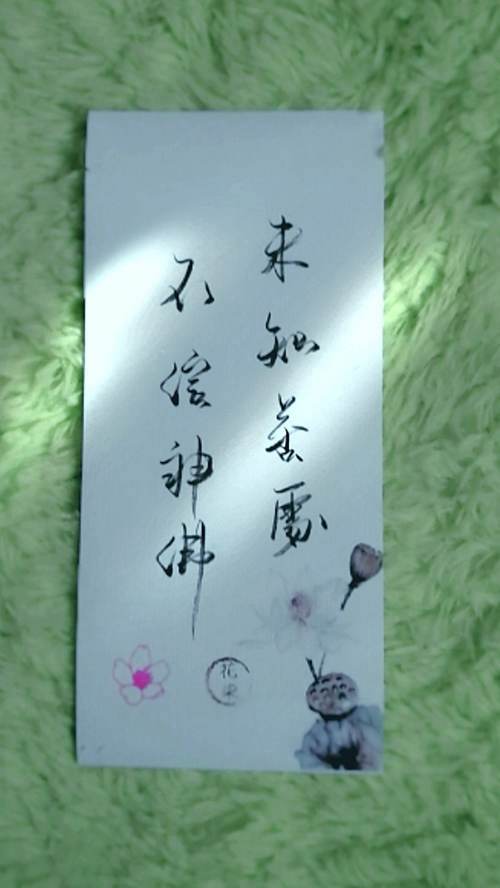 未知苦處
不信神佛
花